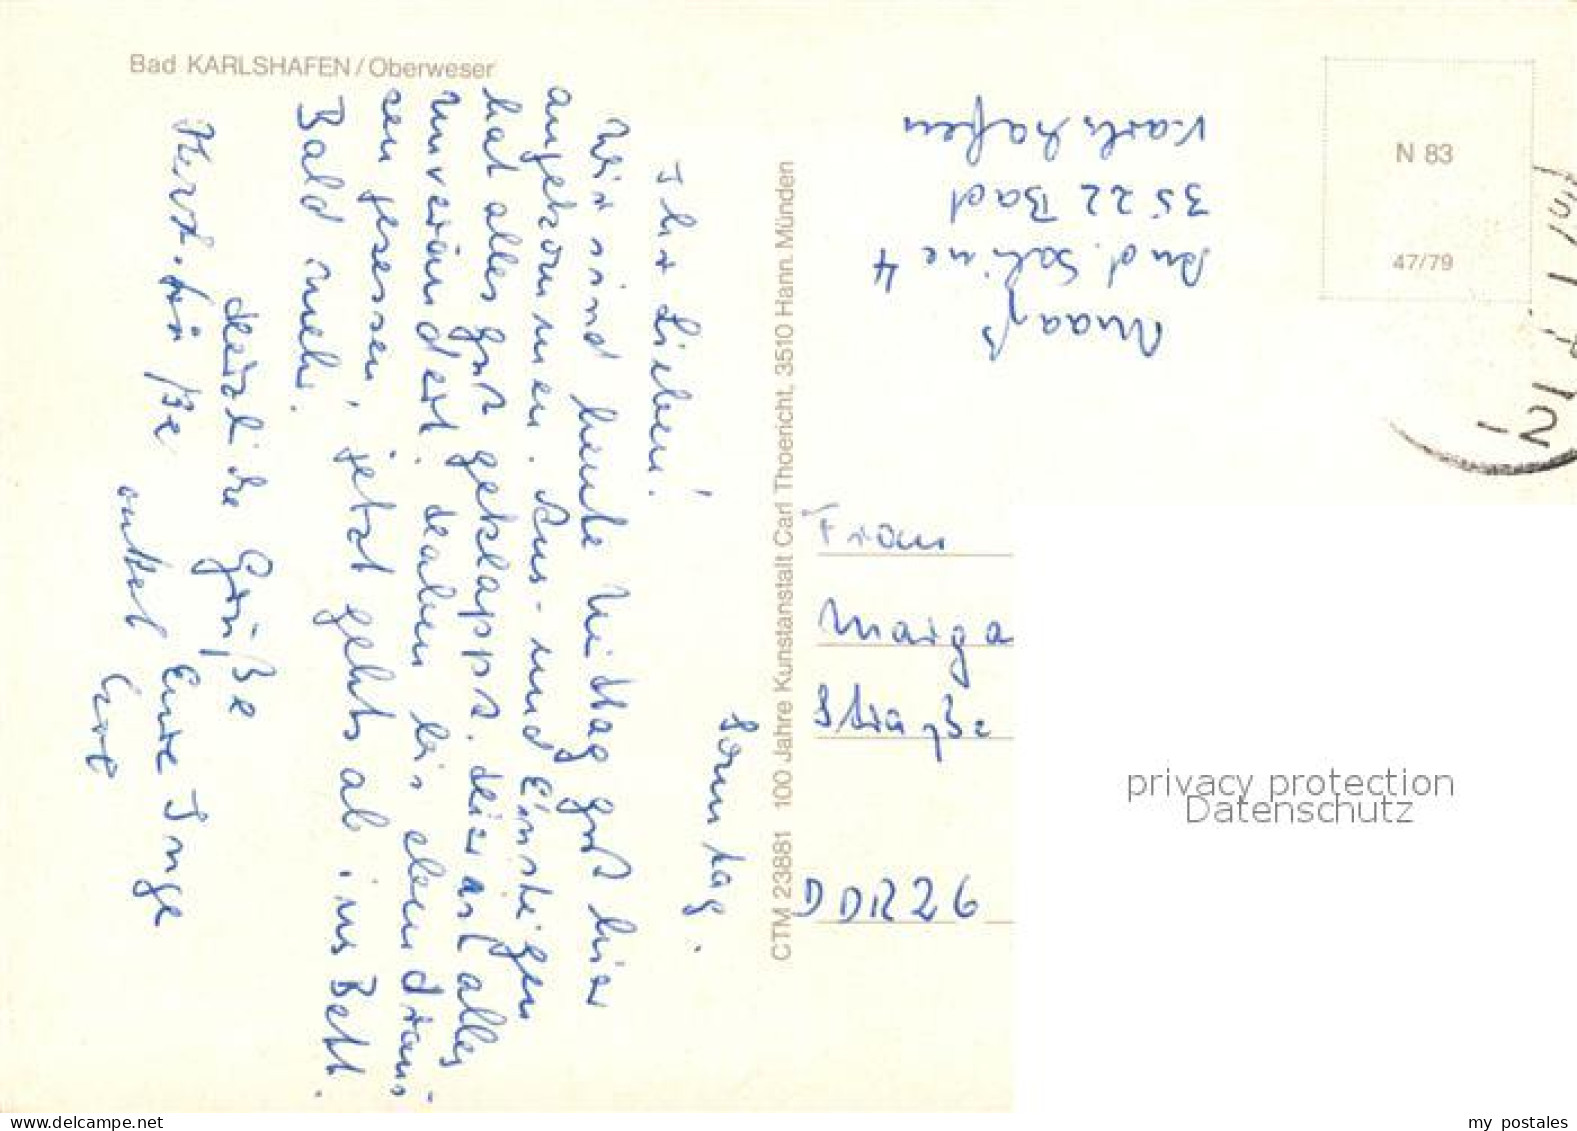 Bad KARLSHAFEN/Oberweser
Sonntag.
Ihr Lieben!
Wir sind heute Mittag gut hier
angekommen. Aus- und Einsteigen
hat alles gut geklappt. Hier ist alles
unverändert. Haben bis eben drau-
ßen gesessen, jetzt gehts ab ins Bett.
Bald mehr.
Herzliche Grüße
Eure Inge
Herzl. Grüße
CTM 23881 100 Jahre Kunstanstalt Carl Thoericht, 3510 Hann. Münden
Maaß
And. Saline 4
3522 Bad
Karlshafen
N 83
47/79
Frau
Marga
Straße
DDR 26
privacy protection
Datenschutz
my postales